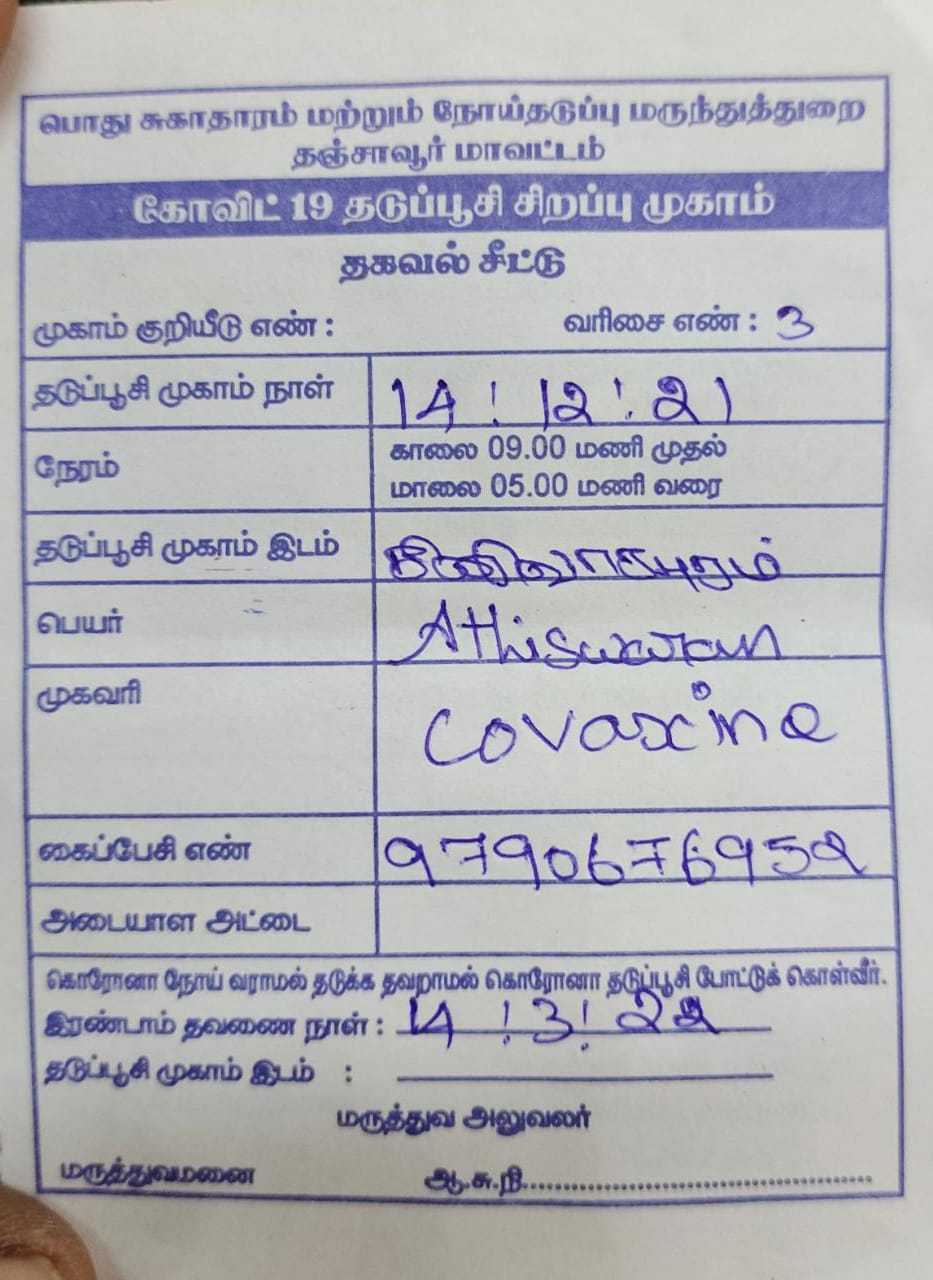 பொது சுகாதாரம் மற்றும் நோய்தடுப்பு மருந்துத்துறை
தஞ்சாவூர் மாவட்டம்
கோவிட் 19 தடுப்பூசி சிறப்பு முகாம்
தகவல் சீட்டு
முகாம் குறியீடு எண் : வரிசை எண் : 3
தடுப்பூசி முகாம் நாள் 14 ! 12 ! 21
நேரம் காலை 09.00 மணி முதல்
மாலை 05.00 மணி வரை
தடுப்பூசி முகாம் இடம்
பெயர் Athiswaran
முகவரி covaxine
கைப்பேசி எண் 9790676952
அடையாள அட்டை
கொரோனா நோய் வராமல் தடுக்க தவறாமல் கொரோனா தடுப்பூசி போட்டுக் கொள்வீர்.
இரண்டாம் தவணை நாள் : 14 ! 3 ! 22
தடுப்பூசி முகாம் இடம் :
மருத்துவ அலுவலர்
மருத்துவமனை ஆ.சு.நி..............................................